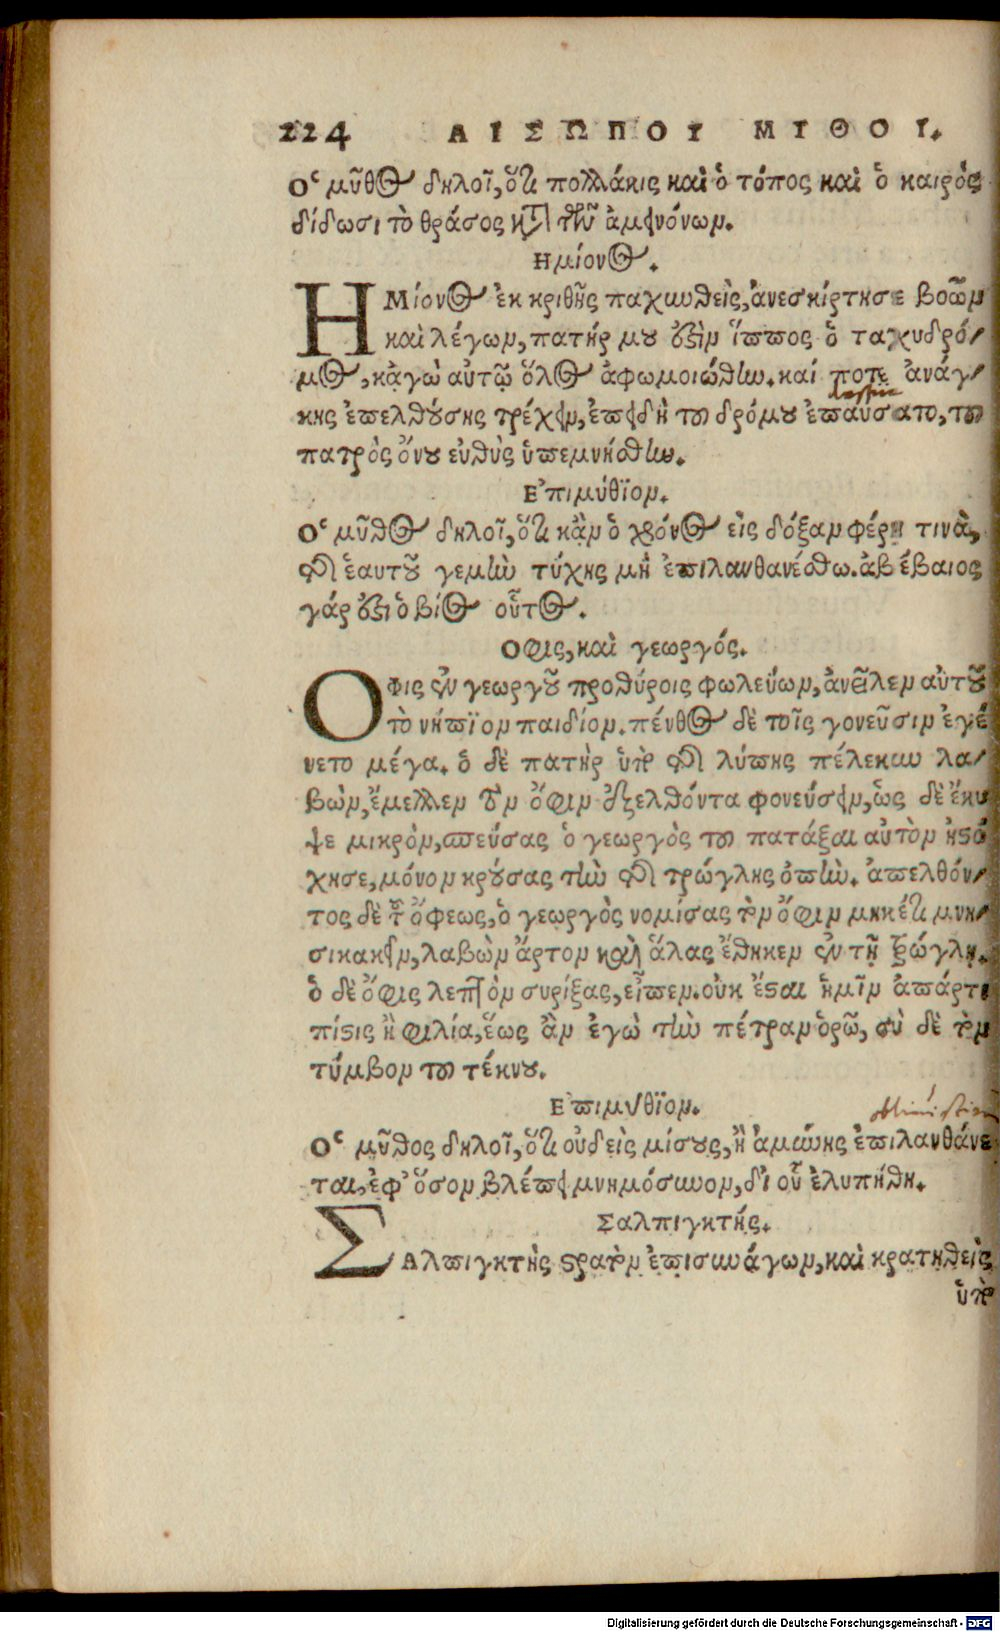 224 ΑΙΣΩΠΟΥ ΜΥΘΟΙ.
Ὁ μῦθος δηλοῖ, ὅτι πολλάκις καὶ ὁ τόπος καὶ ὁ καιρὸς
δίδωσι τὸ θράσος κατὰ τῶν ἀμεινόνων.
Ημίονος.
ΗΜίονος ἐκ κριθῆς παχυνθεὶς, ἀνεσκίρτησε βοῶν
καὶ λέγων, πατήρ μου ἐστὶν ἵππος ὁ ταχυδρό/
μος, κἀγὼ αὐτῷ ὅλος ἀφωμοιώθην. καί ποτε ἀνάγ/
κης ἐπελθούσης τρέχειν, ἐπειδὴ τοῦ δρόμου ἐπαύσατο, τοῦ
πατρὸς ὄνου εὐθὺς ὑπεμνήσθην.
Ἐπιμύθϊον.
Ὁ μῦθος δηλοῖ, ὅτι κἂν ὁ χρόνος εἰς δόξαν φέρῃ τινὰ,
τῆς ἑαυτοῦ γεμὴν τύχης μὴ ἐπιλανθανέσθω. ἀβέβαιος
γάρ ἐστι ὁ βίος οὗτος.
Οφις, καὶ γεωργός.
ΟΦις ἐν γεωργοῦ προθύροις φωλεύων, ἀνεῖλεν αὐτοῦ
τὸ νήπϊον παιδίον. πένθος δὲ τοῖς γονεῦσιν ἐγέ
νετο μέγα. ὁ δὲ πατὴρ ὑπὸ τῆς λύπης πέλεκυν λα/
βὼν, ἔμελλεν τὸν ὄφιν ἐξελθόντα φονεύσειν, ὡς δὲ ἔκυ
ψε μικρὸν, σπεύσας ὁ γεωργὸς τοῦ πατάξαι αὐτὸν ἠστό
χησε, μόνον κρούσας τὴν τῆς τρώγλης ὀπὴν. ἀπελθόν/
τος δὲ τοῦ ὄφεως, ὁ γεωργὸς νομίσας τὸν ὄφιν μηκέτι μνη/
σικακεῖν, λαβὼν ἄρτον καὶ ἅλας ἔθηκεν ἐν τῇ τρώγλῃ.
ὁ δὲ ὄφις λεπτὸν συρίξας, εἶπεν. οὐκ ἔσται ἡμῖν ἀπάρτι
πίστις ἢ φιλία, ἕως ἂν ἐγὼ τὴν πέτραν ὁρῶ, σὺ δὲ τὸν
τύμβον τοῦ τέκνου.
Ἐπιμυθϊον.
Ὁ μῦθος δηλοῖ, ὅτι οὐδεὶς μίσους, ἢ ἀμύνης ἐπιλανθάνε
ται, ἐφ' ὅσον βλέπει μνημόσυνον, δι οὗ ἐλυπήθη.
Σαλπιγκτής.
ΣΑλπιγκτὴς στρατὸν ἐπισυνάγων, καὶ κρατηθεὶς
ὑπὸ
Digitalisierung gefördert durch die Deutsche Forschungsgemeinschaft - DFG